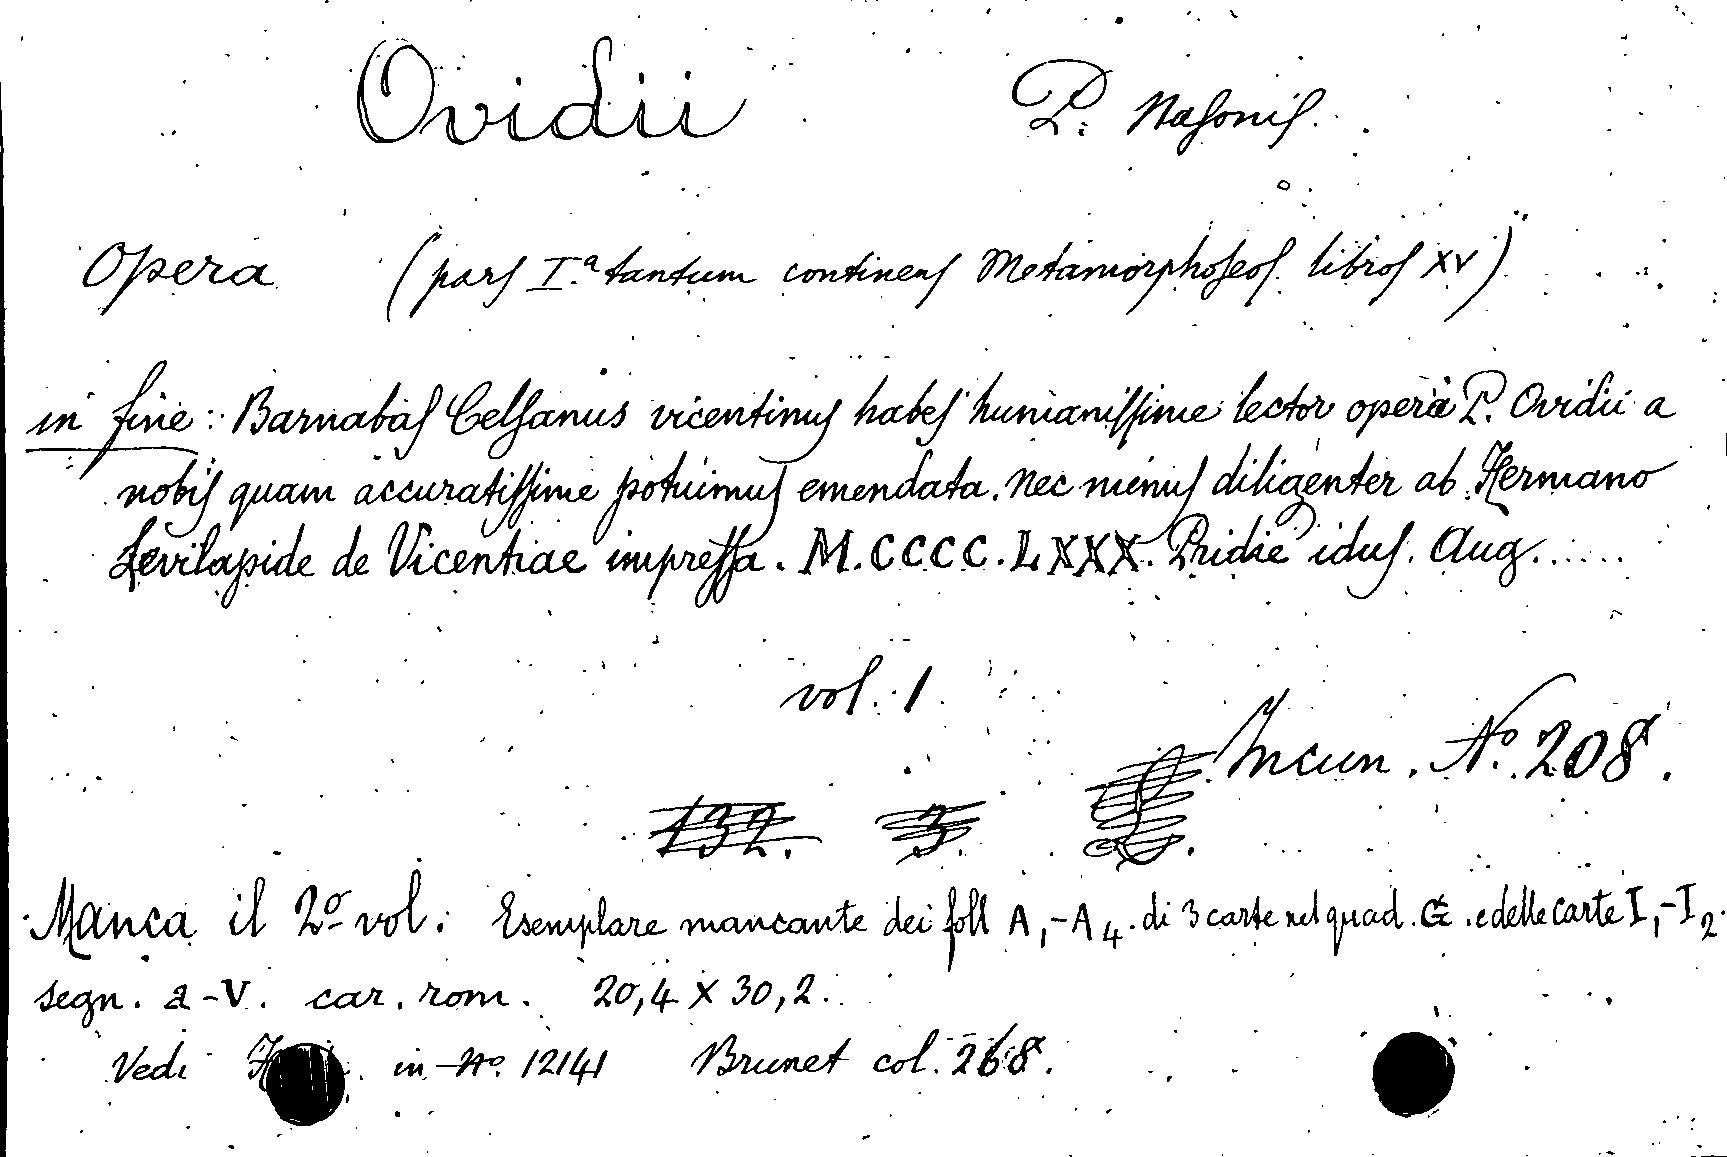 Ovidii P. Nasonis.
Opera (pars I.ª tantum continens Metamorphoseos libros XV)
in fine: Barnabas Celsanus vicentinus habes humanissime lector opera P. Ovidii a
nobis quam accuratissime potuimus emendata. nec minus diligenter ab Hermano
Levilapide de Vicentiae impressa. M.CCCC.LXXX. Pridie idus. Aug.....
vol. 1
Incun. Nº. 208.
132. 3.
Manca il 2º vol. Esemplare mancante dei foll A1-A4. di 3 carte nel quad. G. e delle carte I1-I2.
segn. a-V. car. rom. 20,4 X 30,2.
Vedi in Nº. 12141 Brunet col. 268.